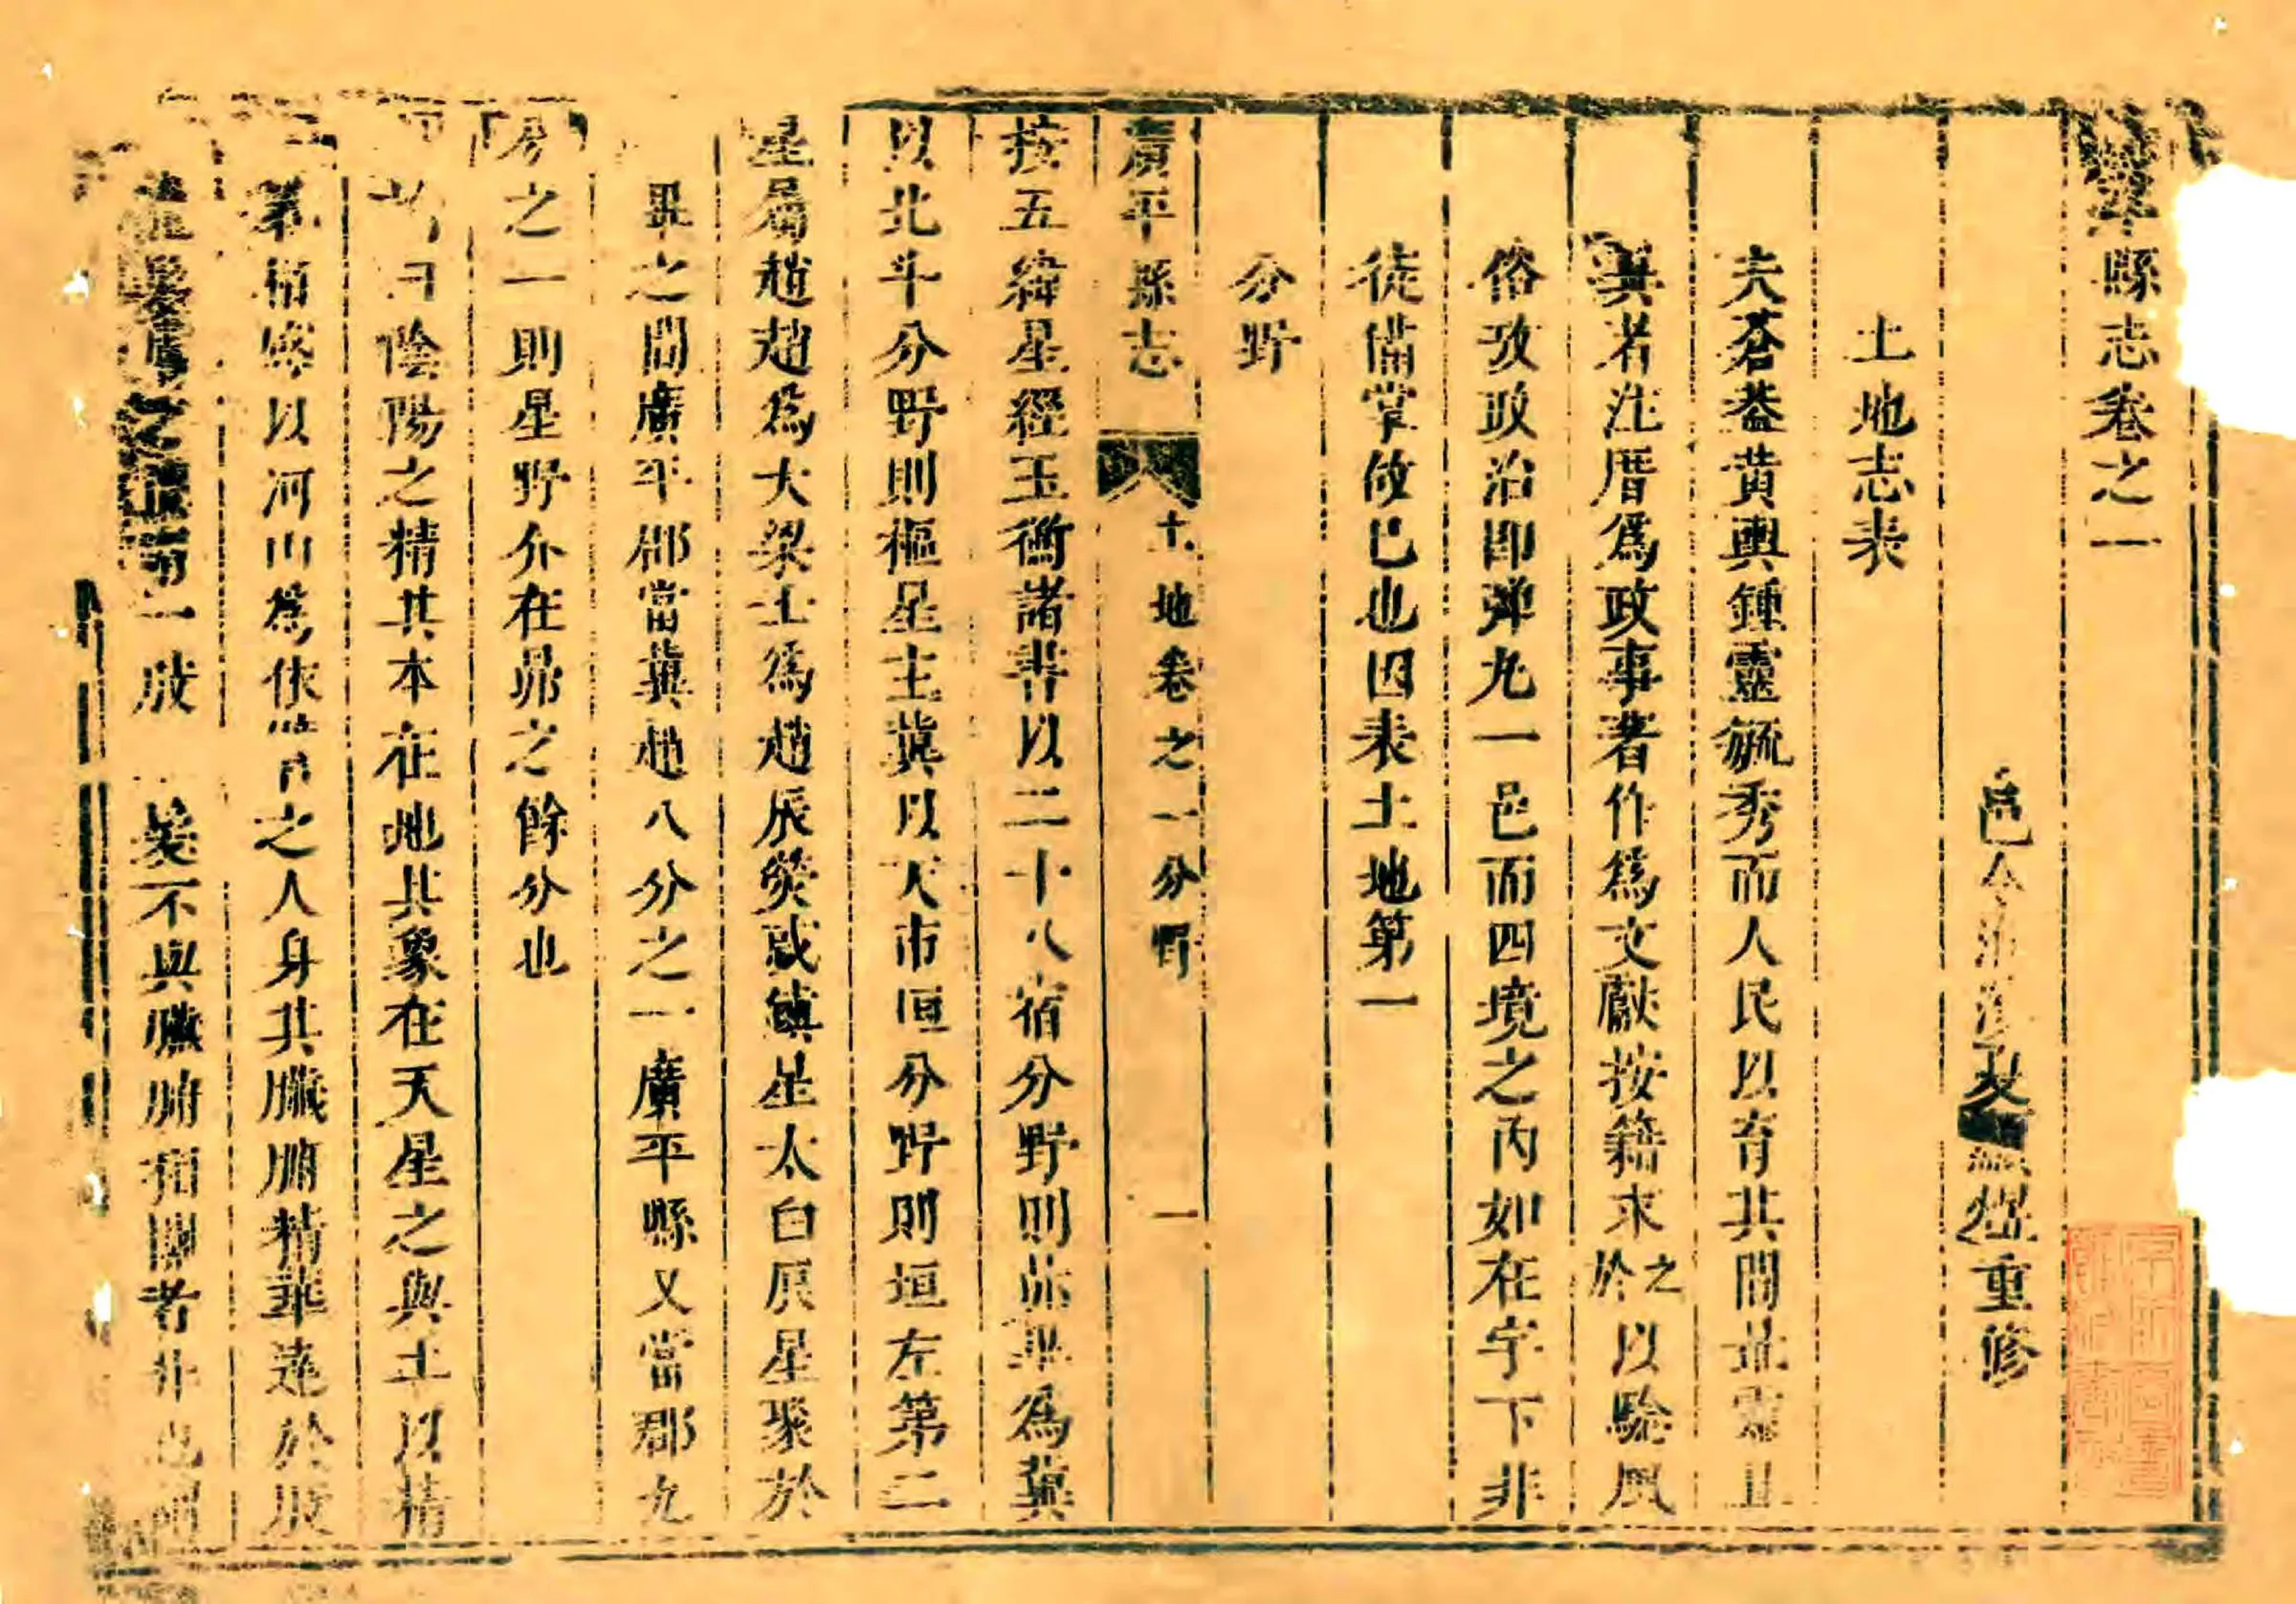 平縣志卷之一
邑令 重修
土地志表
夫蒼蓋黃輿鍾靈毓秀而人民以育其間故靈且
異者注厝爲政事著作爲文獻按籍求之於以驗風
俗攷政治卽彈丸一邑而四境之内如在宇下非
徒備掌故已也因表土地第一
分野
廣平縣志 土地卷之一分野 一
按五緯星經玉衡諸書以二十八宿分野則昴畢爲冀
以北斗分野則樞星主冀以天市垣分野則垣左第二
星屬趙趙爲大梁土爲趙辰熒惑鎮星太白辰星聚於
畢之間廣平郡當冀趙八分之一廣平縣又當郡九
分之一則星野介在昴之餘分也
曰陰陽之精其本在地其象在天星之與土以精
氣相感以河山爲依 之人身其臟腑精華達於肢
之 一肢 不與臟腑相關者非也